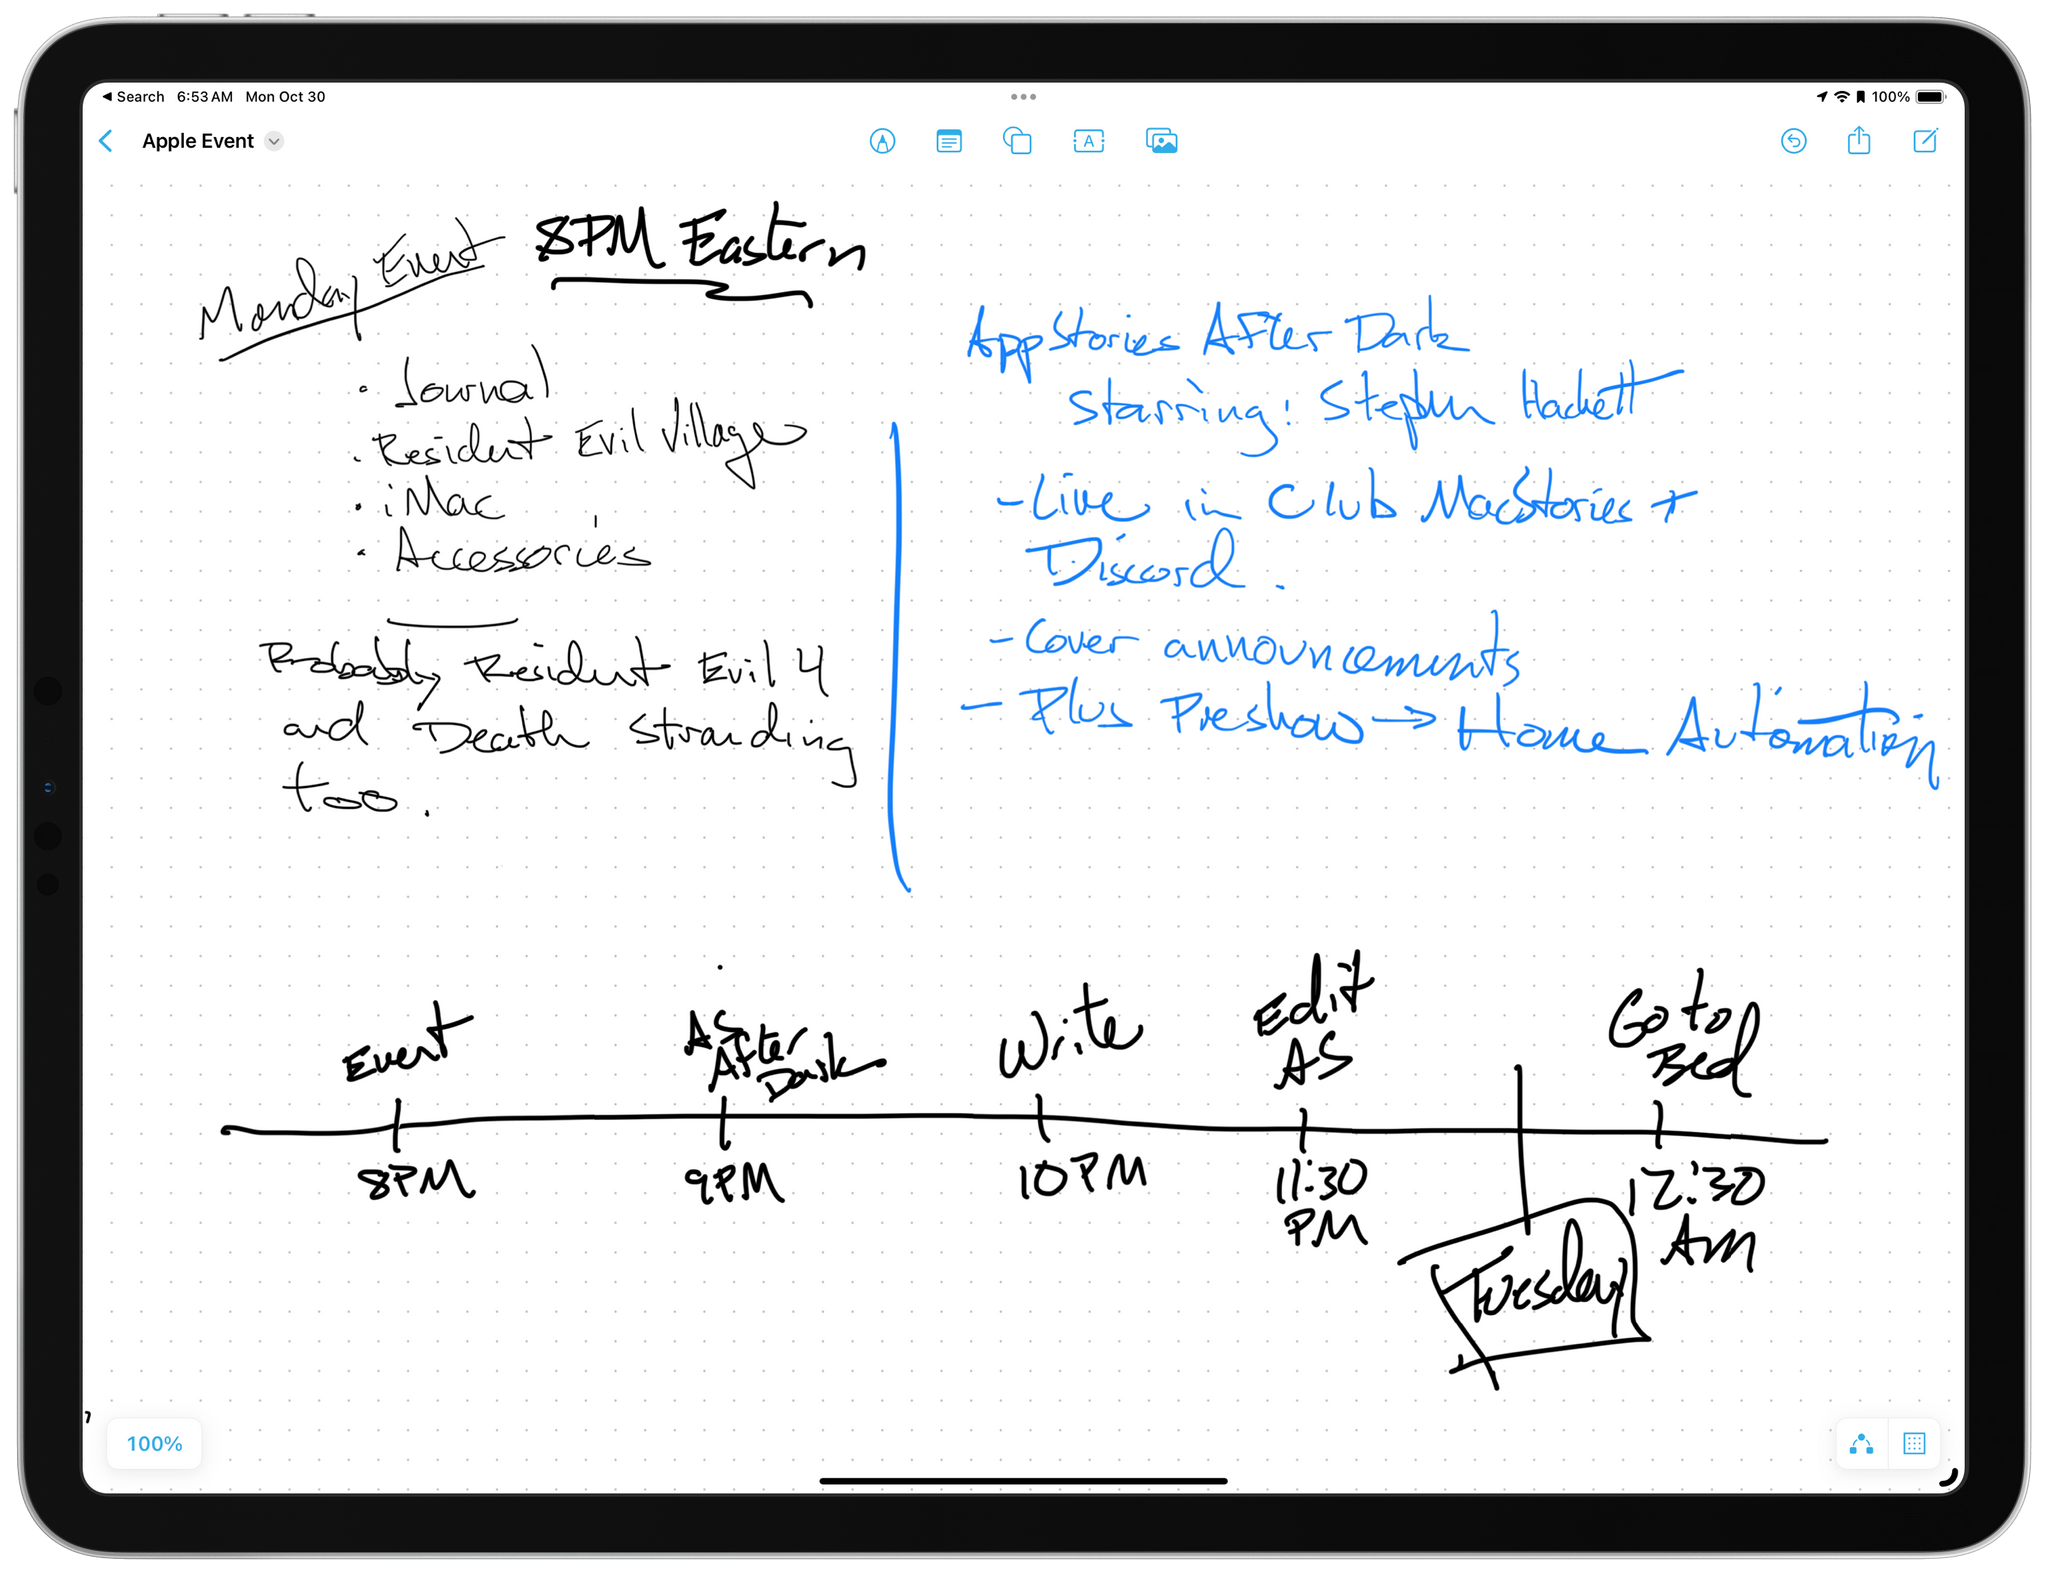 Search 6:53 AM Mon Oct 30
100%
Apple Event
Monday Event
8PM Eastern
· Journal
· Resident Evil Village
· iMac
· Accessories
Probably Resident Evil 4
and Death Stranding
too.
AppStories After Dark
Starring: Stephen Hackett
- Live in Club MacStories +
Discord.
- Cover announcements
- Plus Preshow → Home Automation
Event
AS
After
Dark
Write
Edit
AS
Go to
Bed
8PM
9PM
10PM
11:30
PM
12:30
AM
Tuesday
100%